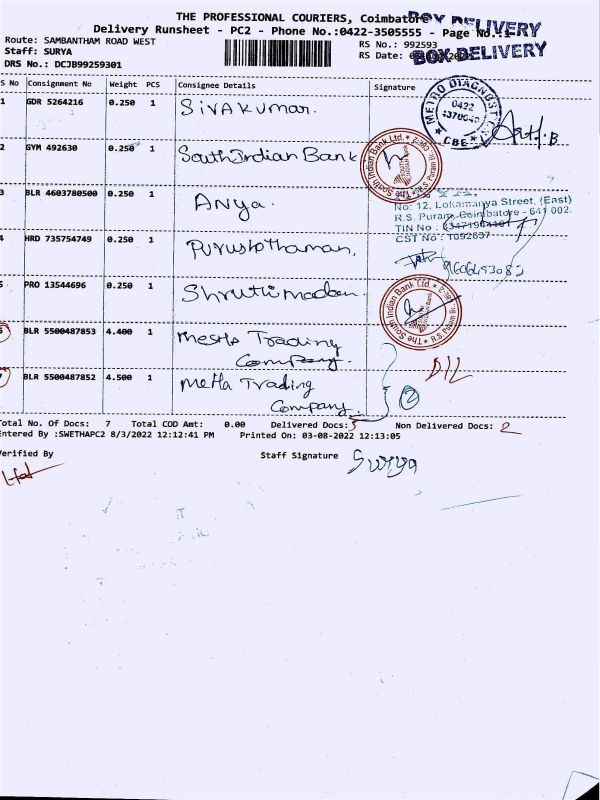 THE PROFESSIONAL COURIERS, Coimbatore
BOX DELIVERY
Delivery Runsheet - PC2 - Phone No.:0422-3505555 - Page No.:1
Route: SAMBANTHAM ROAD WEST
RS No.: 992593
BOX DELIVERY
Staff: SURYA
RS Date:
DRS No.: DCJB99259301
S No Consignment No Weight PCS Consignee Details Signature
1 GDR 5264216 0.250 1 Sivakumar.
METRO DIAGNOST
0422
CBE
2 GYM 492630 0.250 1 South Indian Bank
The South Indian Bank Ltd. R.S. Puram Br.
SOUTH INDIAN BANK
3 BLR 4603780500 0.250 1 Anya.
No: 12, Lokamanya Street, (East)
R.S. Puram, Coimbatore - 641 002.
TIN No :
CST No : 1092637
4 HRD 735754749 0.250 1 Purushothaman,
5 PRO 13544696 0.250 1 Shruthi madan.
The South Indian Bank Ltd. R.S. Puram Br.
6 BLR 5500487853 4.400 1 Mesha Trading
Company.
7 BLR 5500487852 4.500 1 Metla Trading
Company.
D/L
2
Total No. Of Docs: 7 Total COD Amt: 0.00 Delivered Docs: 5 Non Delivered Docs: 2
Entered By :SWETHAPC2 8/3/2022 12:12:41 PM Printed On: 03-08-2022 12:13:05
Verified By Staff Signature Surya